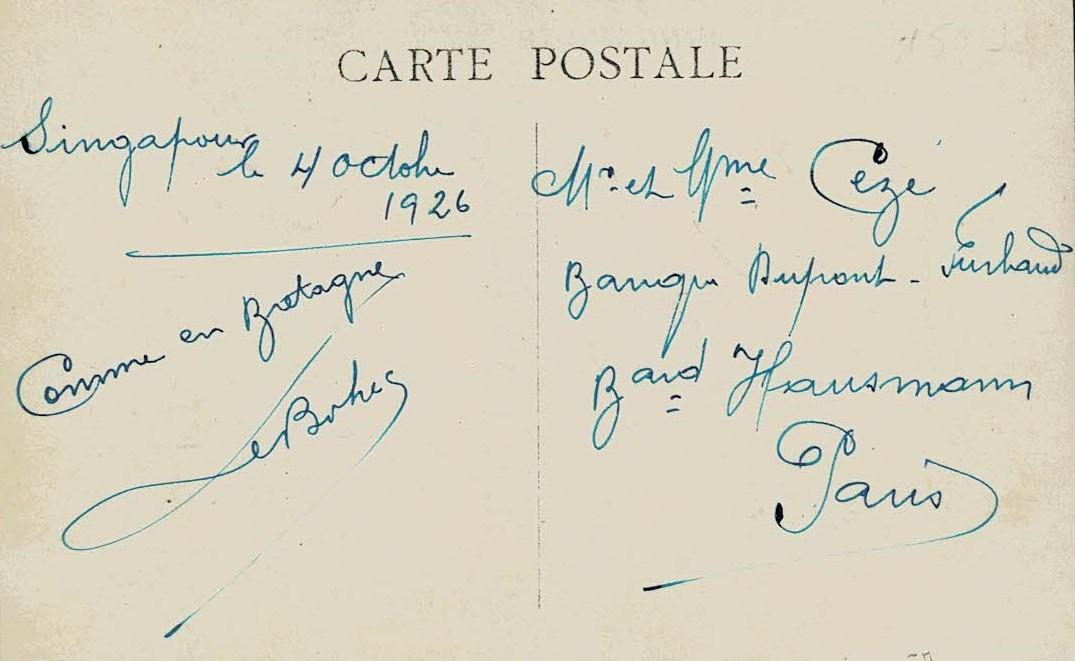 CARTE POSTALE
Singapour
le 4 octobre
1926
Comme en Bretagne
Le
Mr. et Mme Cézé
Banque Dupont -
Bard Hausmann
Paris